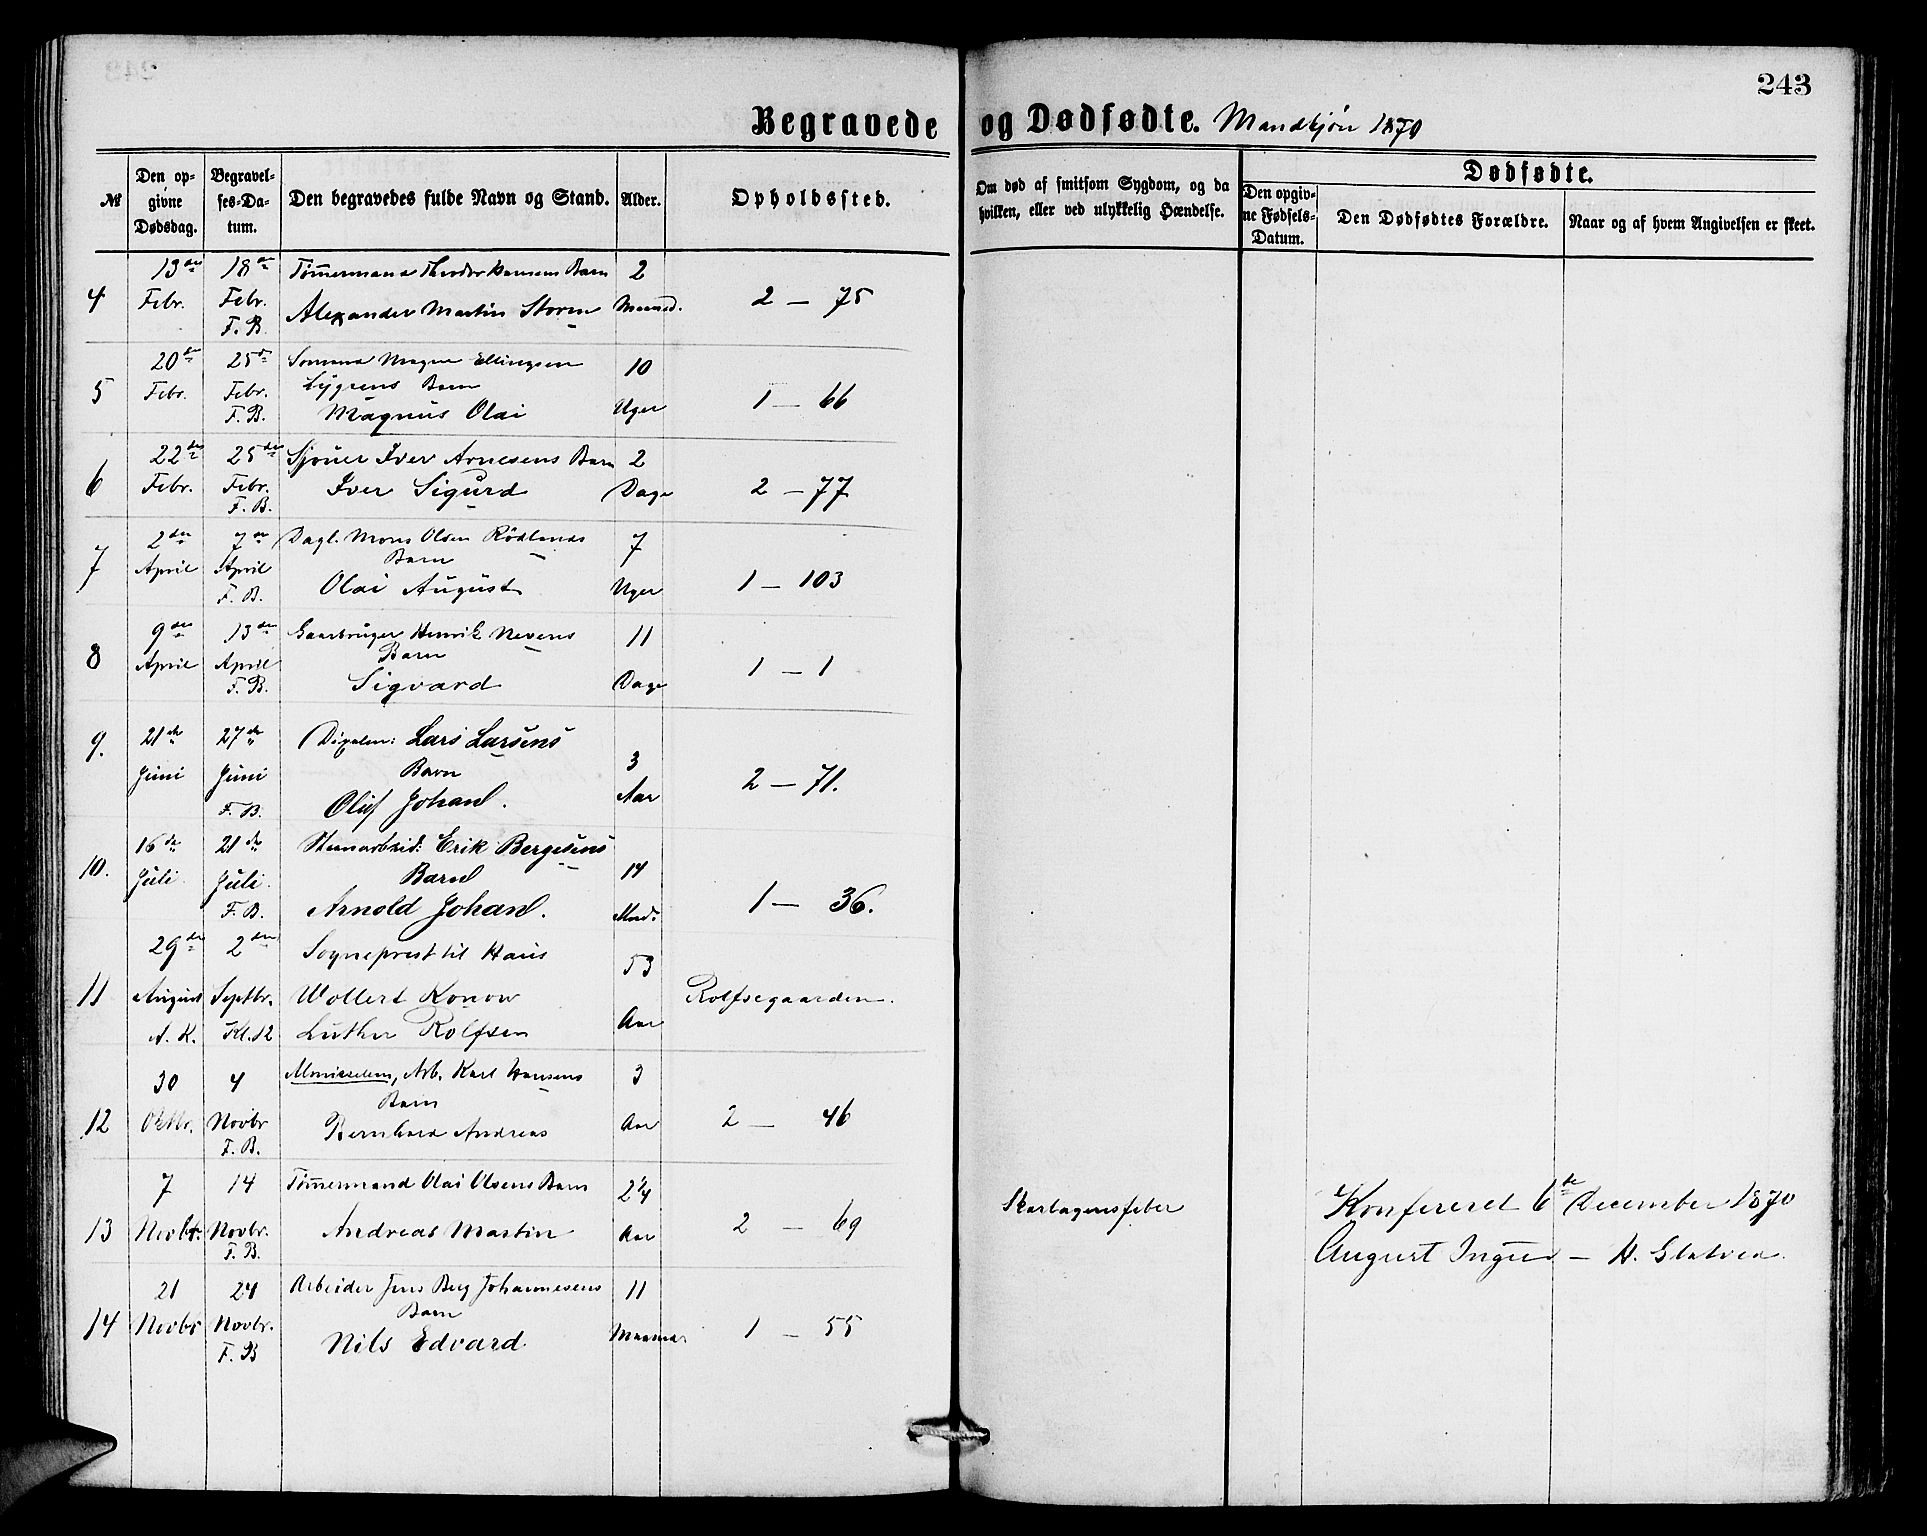 243
Begravede og Dødfødte. Mandkjön 1870
№
Den opgivne Dødsdag.
Begravelses-Datum.
Den begravedes fulde Navn og Stand.
Alder.
Opholdssted.
Om død af smitsom Sygdom, og da hvilken, eller ved ulykkelig Hændelse.
Dødfødte.
Den opgivne Fødsels-Datum.
Den Dødfødtes Forældre.
Naar og af hvem Angivelsen er skeet.
4 13de Febr. 18de Febr. F. B. Tömermand Theodor Hansens Barn
Alexander Martin Storm 2 Maaned. 2 – 75
5 20de Febr. 25de Febr. F. B. Sömand Magne Ellingsen
Lygrens Barn
Magnus Olai 10 Uger 1 – 66
6 22de Febr. 25de Febr. F. B. Sjouer Iver Arnesens Barn
Iver Sigurd 2 Dage 2 – 77
7 2den April 7de April F. B. Dagl. Mons Olsen Rödlands
Barn
Olai August 7 Uger 1 – 103
8 9de April 13de April F. B. Gaarbruger Henrik Nevens
Barn
Sigvard 11 Dage 1 – 1
9. 21de Juni 27de Juni F. B. Lars Larsens
Barn
Oluf Johan. 3 Aar 2 – 71.
10. 16de Juli 21de Juli. F. B. Steenarbeid: Erik Bergesens
Barn
Arnold Johan. 14 Mnd. 1 – 36.
11 29de August A. K. 2den Septbr. Kl. 12 Sogneprest til Haus
Wollert Konow
Luther Rolfsen 53 Aar Rolfsegaarden.
12 30 Oktbr. 4 Novbr F. B. Almisselem, Arb. Karl Hansens
Barn
Bernhard Andreas 3 Aar 2 – 46
13 7 Novbr. 14 Novbr. F. B. Tömermand Olai Olsens Barn
Andreas Martin 2¼ Aar 2 – 69 Skarlagensfeber
Konfereret 6te December 1870
August – H. Slatvea.
14 21 Novbr 24 Novbr. F. B Arbeider Jens Berg Johannesens
Barn
Nils Edvard 11 Maaned 1 – 55